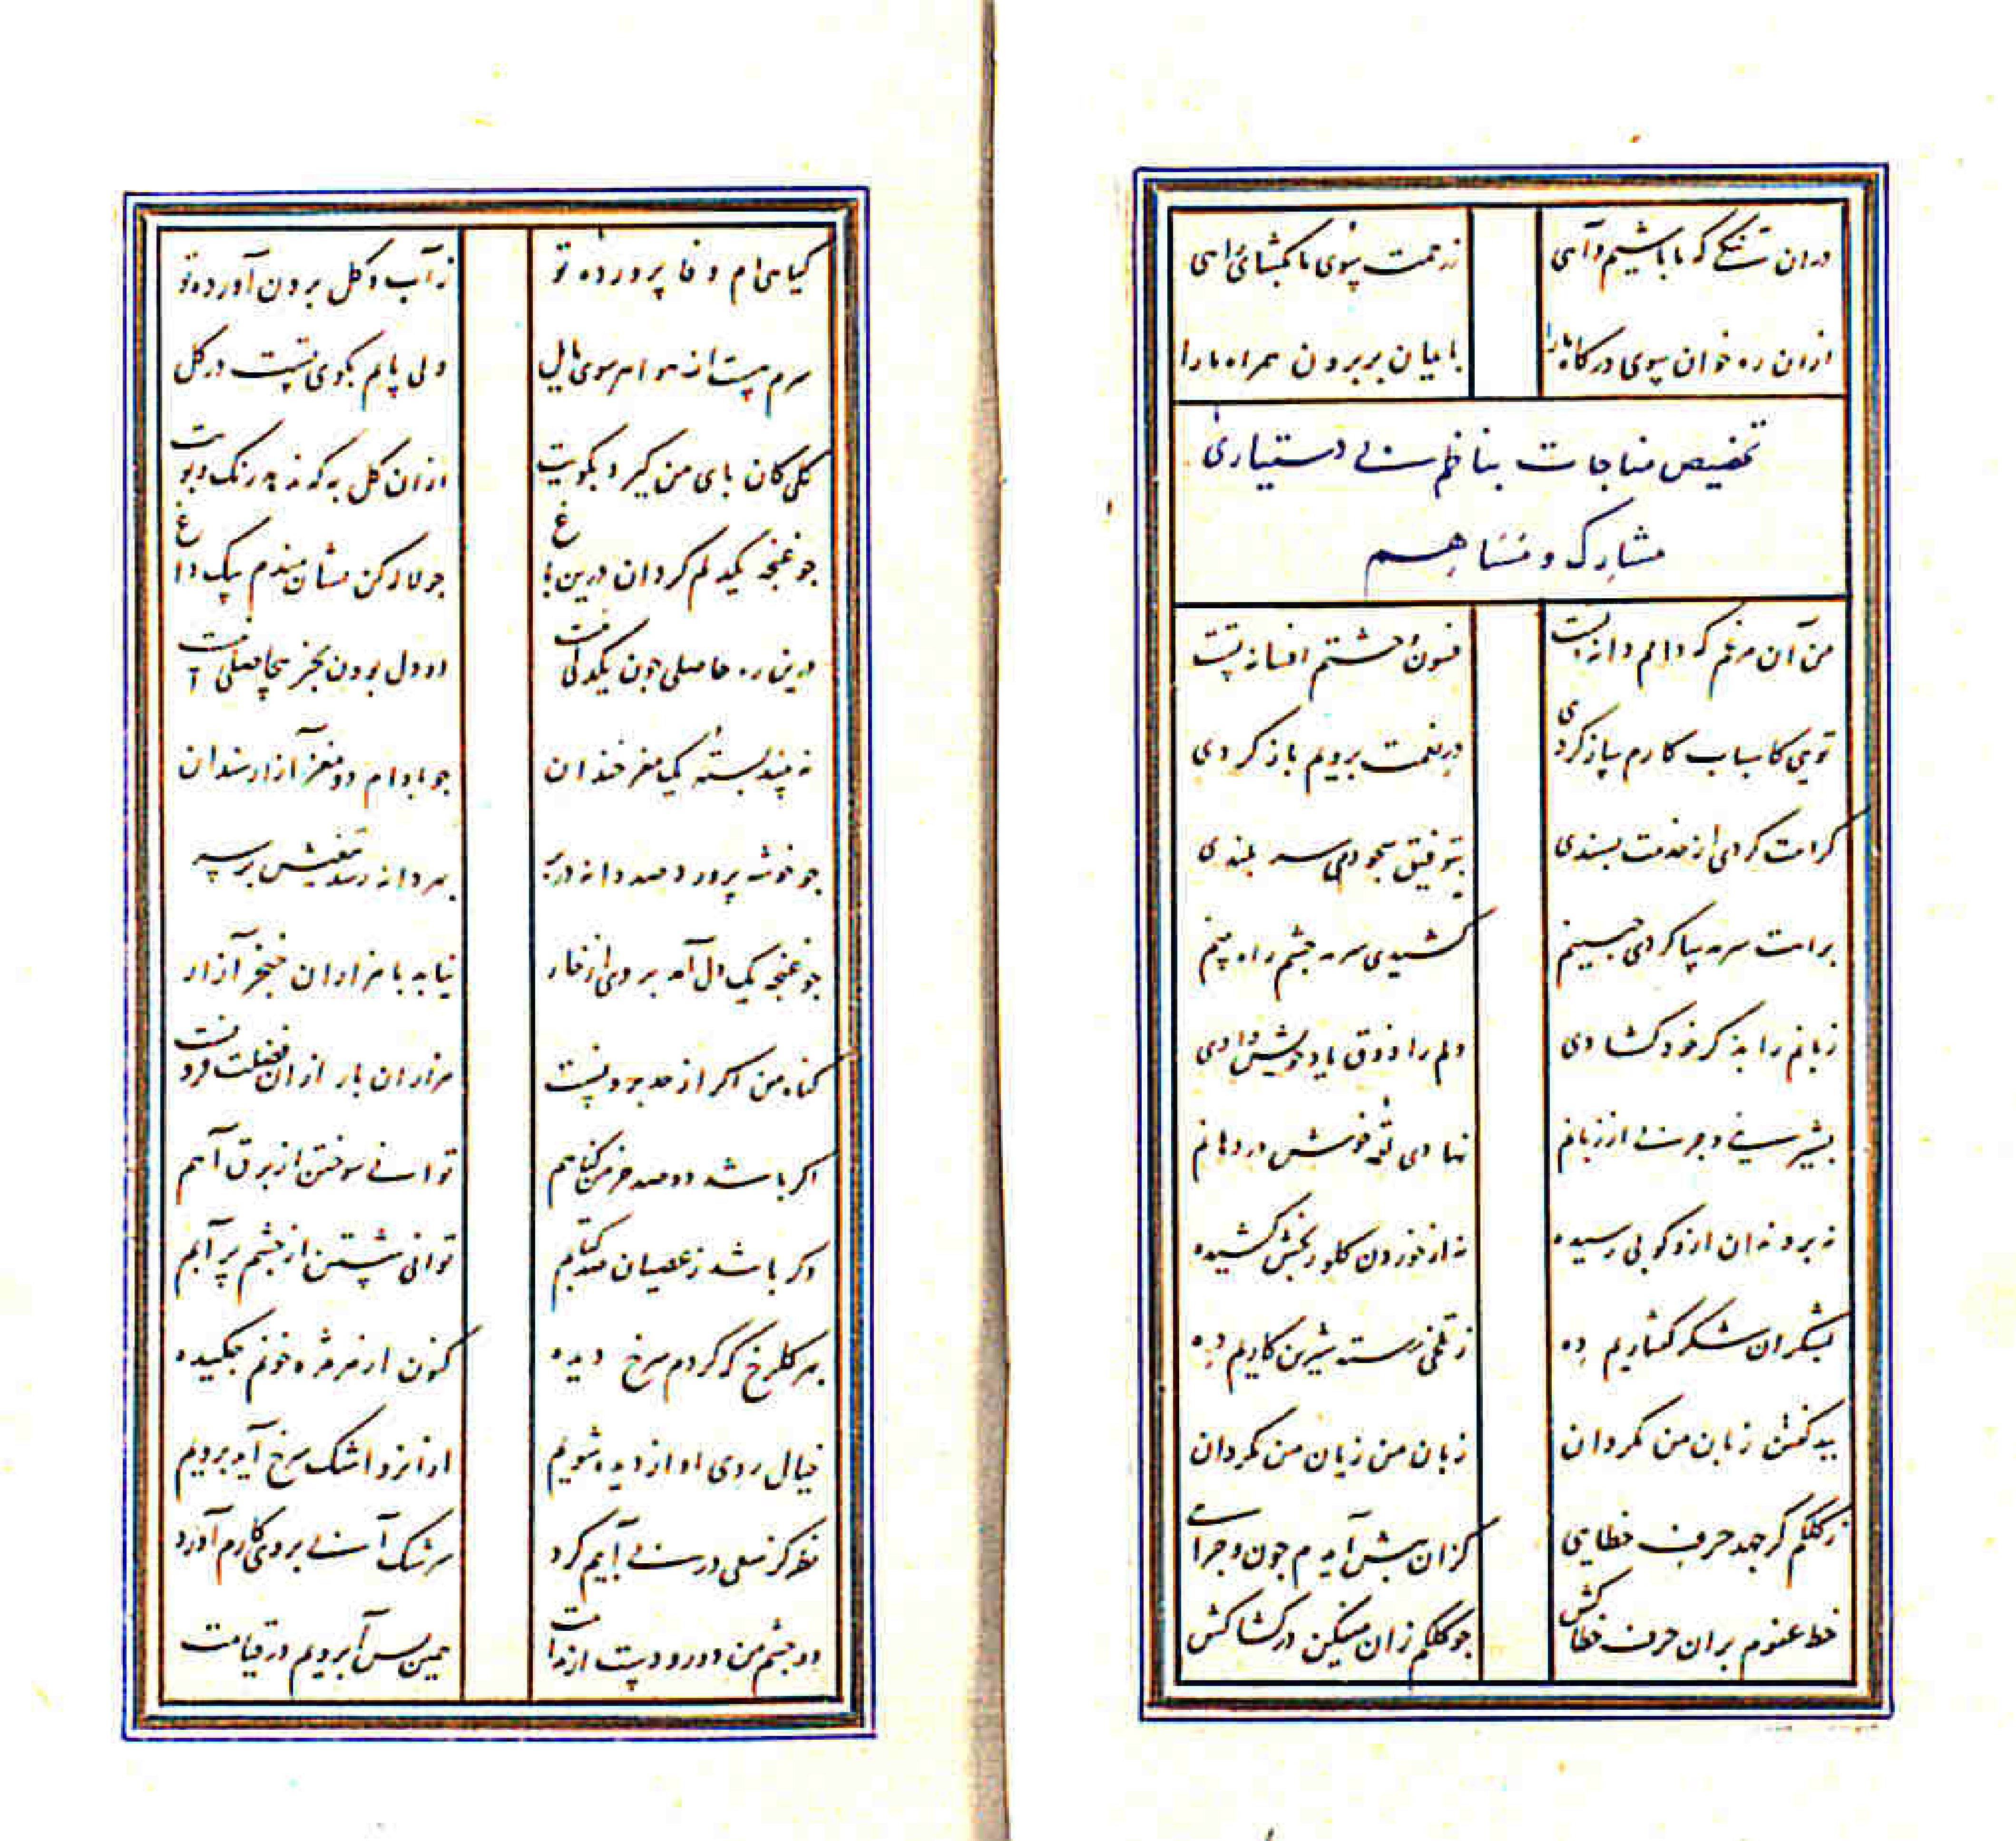 دران تنگی که ما باشیم و آهی    ز رحمت سوی ما بگشای راهی
ازان ره خوان سوی درگاه ما را    با یمان بر برون همراه ما را
تخصیص مناجات بناظم بی دستیاری
مشارک و مساهم
من آن مرغم که دامم دانهٔ تست    فسون وحشتم افسانهٔ تست
تویی کاسباب کارم ساز کردی    در نعمت برویم باز کردی
کرامت کردی از خدمت پسندی    بتوفیق سجودم سر بلندی
براهت سرمه سا کردی جبینم    کشیدی سرمه چشم راه بینم
زبانم را بذکر خود کشادی    دلم را ذوق یاد خویش دادی
بشیرینی و چربی از زبانم    نهادی لقمهٔ خوش در دهانم
نه بر دندان ازو کوبی رسیده    نه از خوردن گلو رنجش کشیده
بشکر آن شکر گفتاریم ده    ز تلخی رسته شیرین کاریم ده
ببد گفتن زبان من مگردان    زبان من زیان من مگردان
ز کلکم گر جهد حرف خطایی    کزان پیش آیدم چون و چرایی
خط عفوم بران حرف خطا کش    چو کلکم زان میفکن در کشاکش
گیاهی ام وفا پروردهٔ تو    ز آب و گل برون آوردهٔ تو
سرم هست از هوا هر سوی مایل    ولی پایم بکوی تست در گل
گلی کان پای من گیرد بکویت    ازان گل به که ندهد رنگ و بویت
چو غنچه یکدلم گردان درین باغ    چو لاله کن نشانمندم بیک داغ
درین ره حاصلی چون یکدلی نیست    دو دل بودن بجز بیحاصلی نیست
نه بیند پستهٔ یک مغز خندان    چو بادام دو مغز آزار سندان
چو خوشه پرورد صد دانه در بر    بهر دانه رسد تیغیش بر سر
چو غنچه یک دل آمد بر وی از خار    نیاید با هزاران خنجر آزار
گناه من اگر از حد برونست    هزاران بار ازان فضلت فزونست
اگر باشد دو صد خرمن گناهم    توانی سوختن از برق آهم
وگر باشد ز عصیان صد کتابم    توانی شستن از چشم پر آبم
بهر گلرخ که کردم سرخ دیده    کنون از هر مژه خونم چکیده
خیال روی او از دیده شویم    ازانرو اشک سرخ آید برویم
نظر کز سعی در بی آبیم کرد    سرشک آبی بروی کارم آورد
دو چشم من دو رودست از ندامت    همین بس آبرویم در قیامت